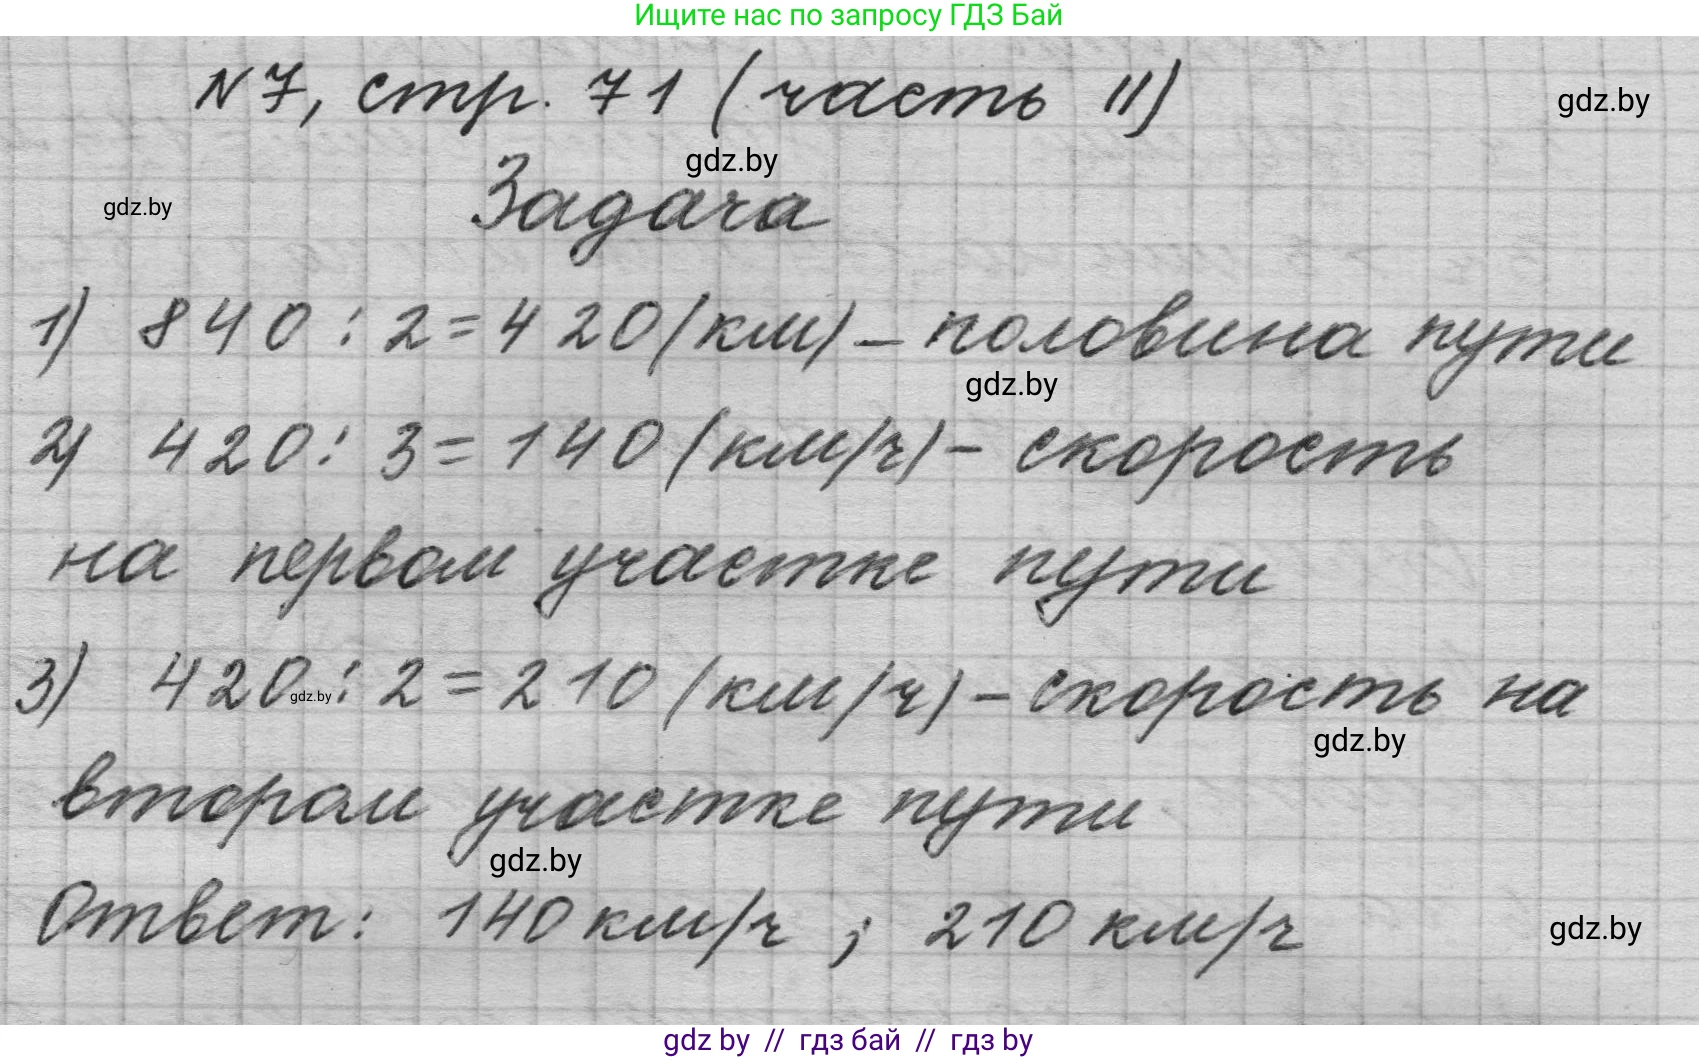 Ищите нас по запросу ГДЗ Бай
N7, стр. 71 (часть II)
gdz.by
gdz.by
gdz.by
Задача
1) 840 : 2 = 420 (км) – половина пути
gdz.by
2) 420 : 3 = 140 (км/ч) – скорость
на первом участке пути
3) 420 : 2 = 210 (км/ч) – скорость на
gdz.by
gdz.by
втором участке пути
gdz.by
Ответ: 140 км/ч ; 210 км/ч
gdz.by
gdz by // гдз бай // гдз by